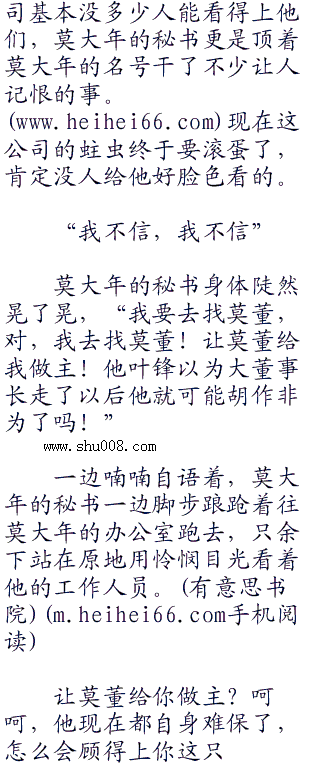 司基本没多少人能看得上他
们，莫大年的秘书更是顶着
莫大年的名号干了不少让人
记恨的事。
(www.heihei66.com)现在这
公司的蛀虫终于要滚蛋了，
肯定没人给他好脸色看的。
“我不信，我不信”
莫大年的秘书身体陡然
晃了晃，“我要去找莫董，
对，我去找莫董！让莫董给
我做主！他叶锋以为大董事
长走了以后他就可能胡作非
为了吗！”
www.shu008.com
一边喃喃自语着，莫大
年的秘书一边脚步踉跄着往
莫大年的办公室跑去，只余
下站在原地用怜悯目光看着
他的工作人员。(有意思书
院)(m.heihei66.com手机阅
读)
让莫董给你做主？呵
呵，他现在都自身难保了，
怎么会顾得上你这只